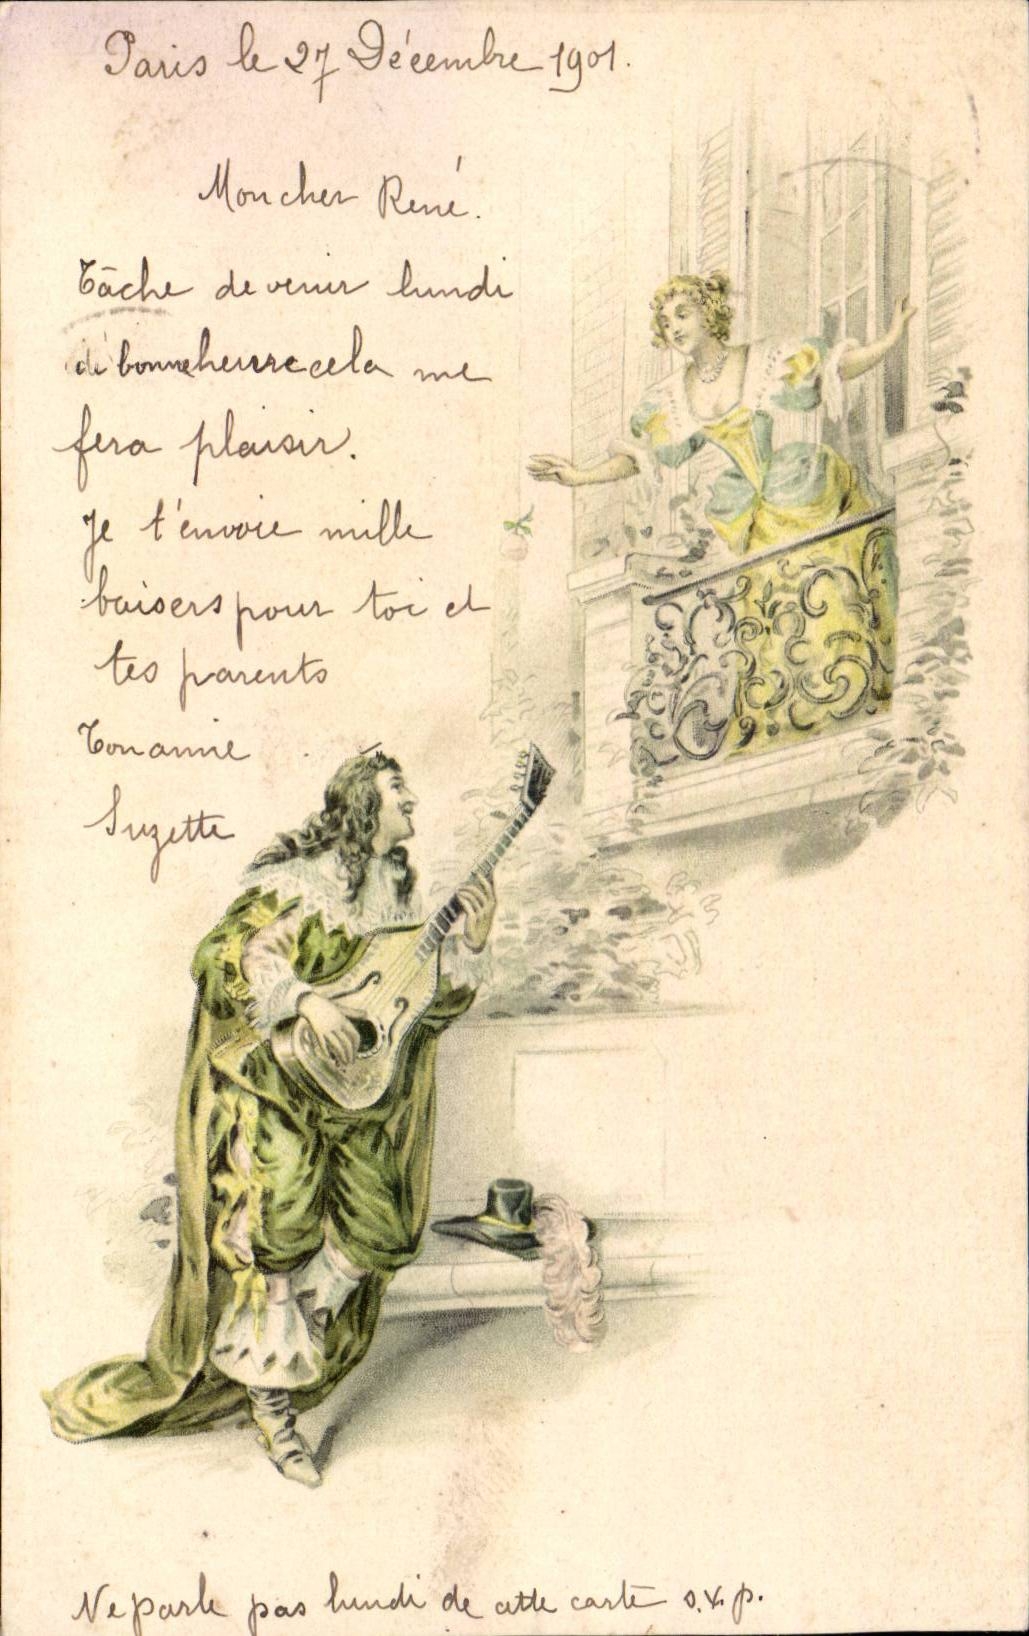 Paris le 27 Décembre 1901.
Mon cher René.
Tâche de venir lundi
de bonne heure cela me
fera plaisir.
Je t'envoie mille
baisers pour toi et
tes parents
Ton amie
Suzette
Ne parle pas lundi de cette carte s.v.p.